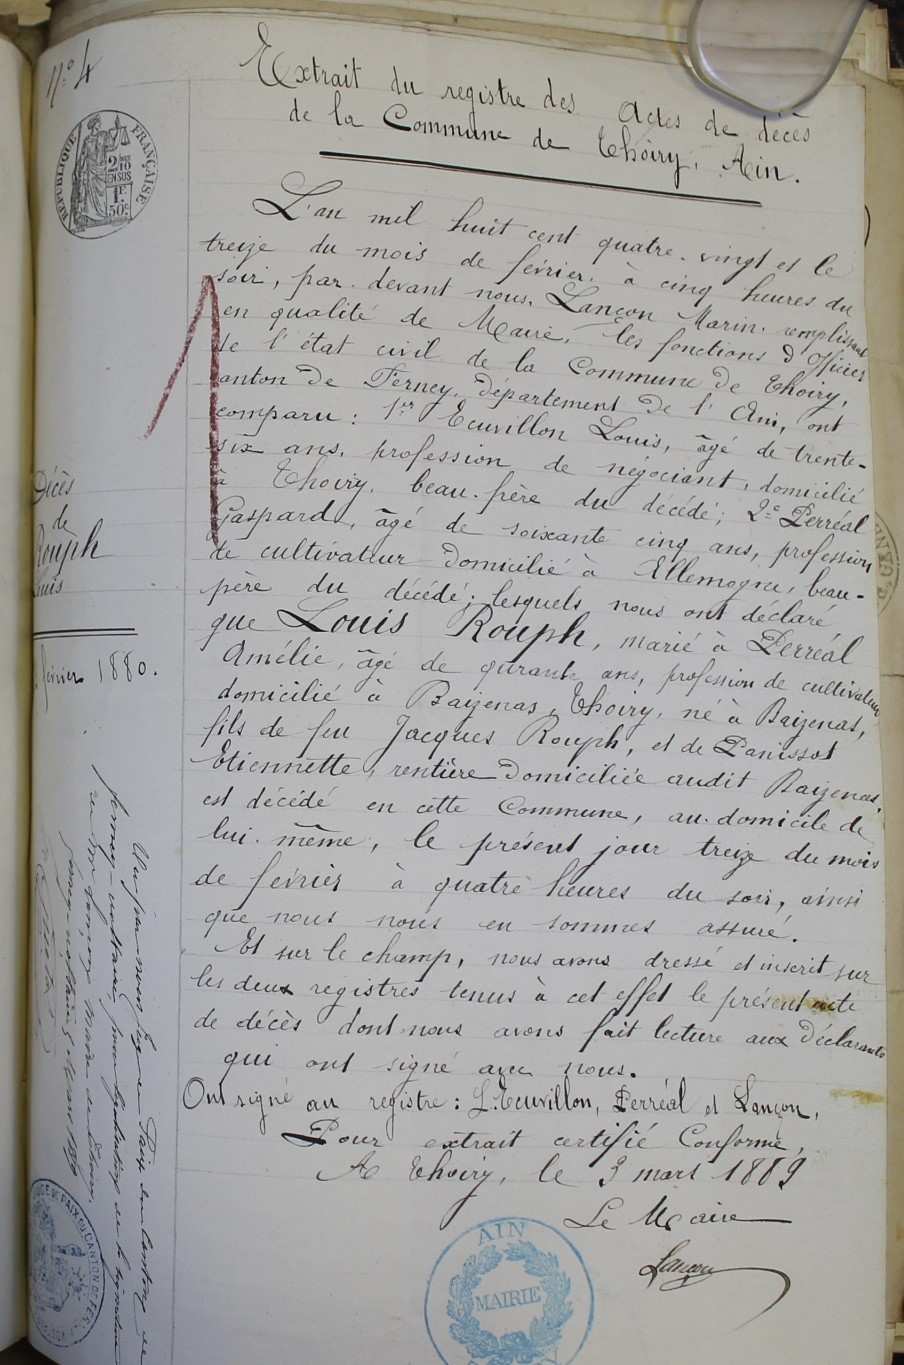 N° 4
Extrait du registre des Actes de décès
de la Commune de Thoiry, Ain.
RÉPUBLIQUE FRANÇAISE
2
EN SUS
1F.
50c
L'an mil huit cent quatre-vingt et le
treize du mois de février, à cinq heures du
soir, par devant nous, Lançon Marin, remplissant
en qualité de Maire, les fonctions d'officier
de l'état civil de la Commune de Thoiry,
canton de Ferney, département de l'Ain, ont
comparu : 1er Teuvillon Louis, âgé de trente-
six ans, profession de négociant, domicilié
à Thoiry, beau-frère du décédé; 2e Perréal
Gaspard, âgé de soixante cinq ans, profession
de cultivateur domicilié à Allemogne, beau-
père du décédé; lesquels nous ont déclaré
que Louis Rouph, marié à Perréal
Amélie, âgé de quarante ans, profession de cultivateur
domicilié à Baizenas, Thoiry, né à Baizenas,
fils de feu Jacques Rouph, et de Panissot
Etiennette, rentière domiciliée audit Baizenas,
est décédé en cette Commune, au domicile de
lui-même, le présent jour treize du mois
de février à quatre heures du soir, ainsi
que nous nous en sommes assuré.
Et sur le champ, nous avons dressé et inscrit sur
les deux registres tenus à cet effet le présent acte
de décès dont nous avons fait lecture aux déclarants
qui ont signé avec nous.
Ont signé au registre : L. Teuvillon, Perréal et Lançon,
Pour extrait certifié Conforme,
A Thoiry, le 9 mars 1889
Le Maire
Lançon
AIN
MAIRIE
Décès
de
Rouph
Louis
février 1880.
Vu par nous Juge de Paix du canton de
pour légalisation de la signature
Lançon Maire de Thoiry,
JUSTICE DE PAIX DU CANTON DE